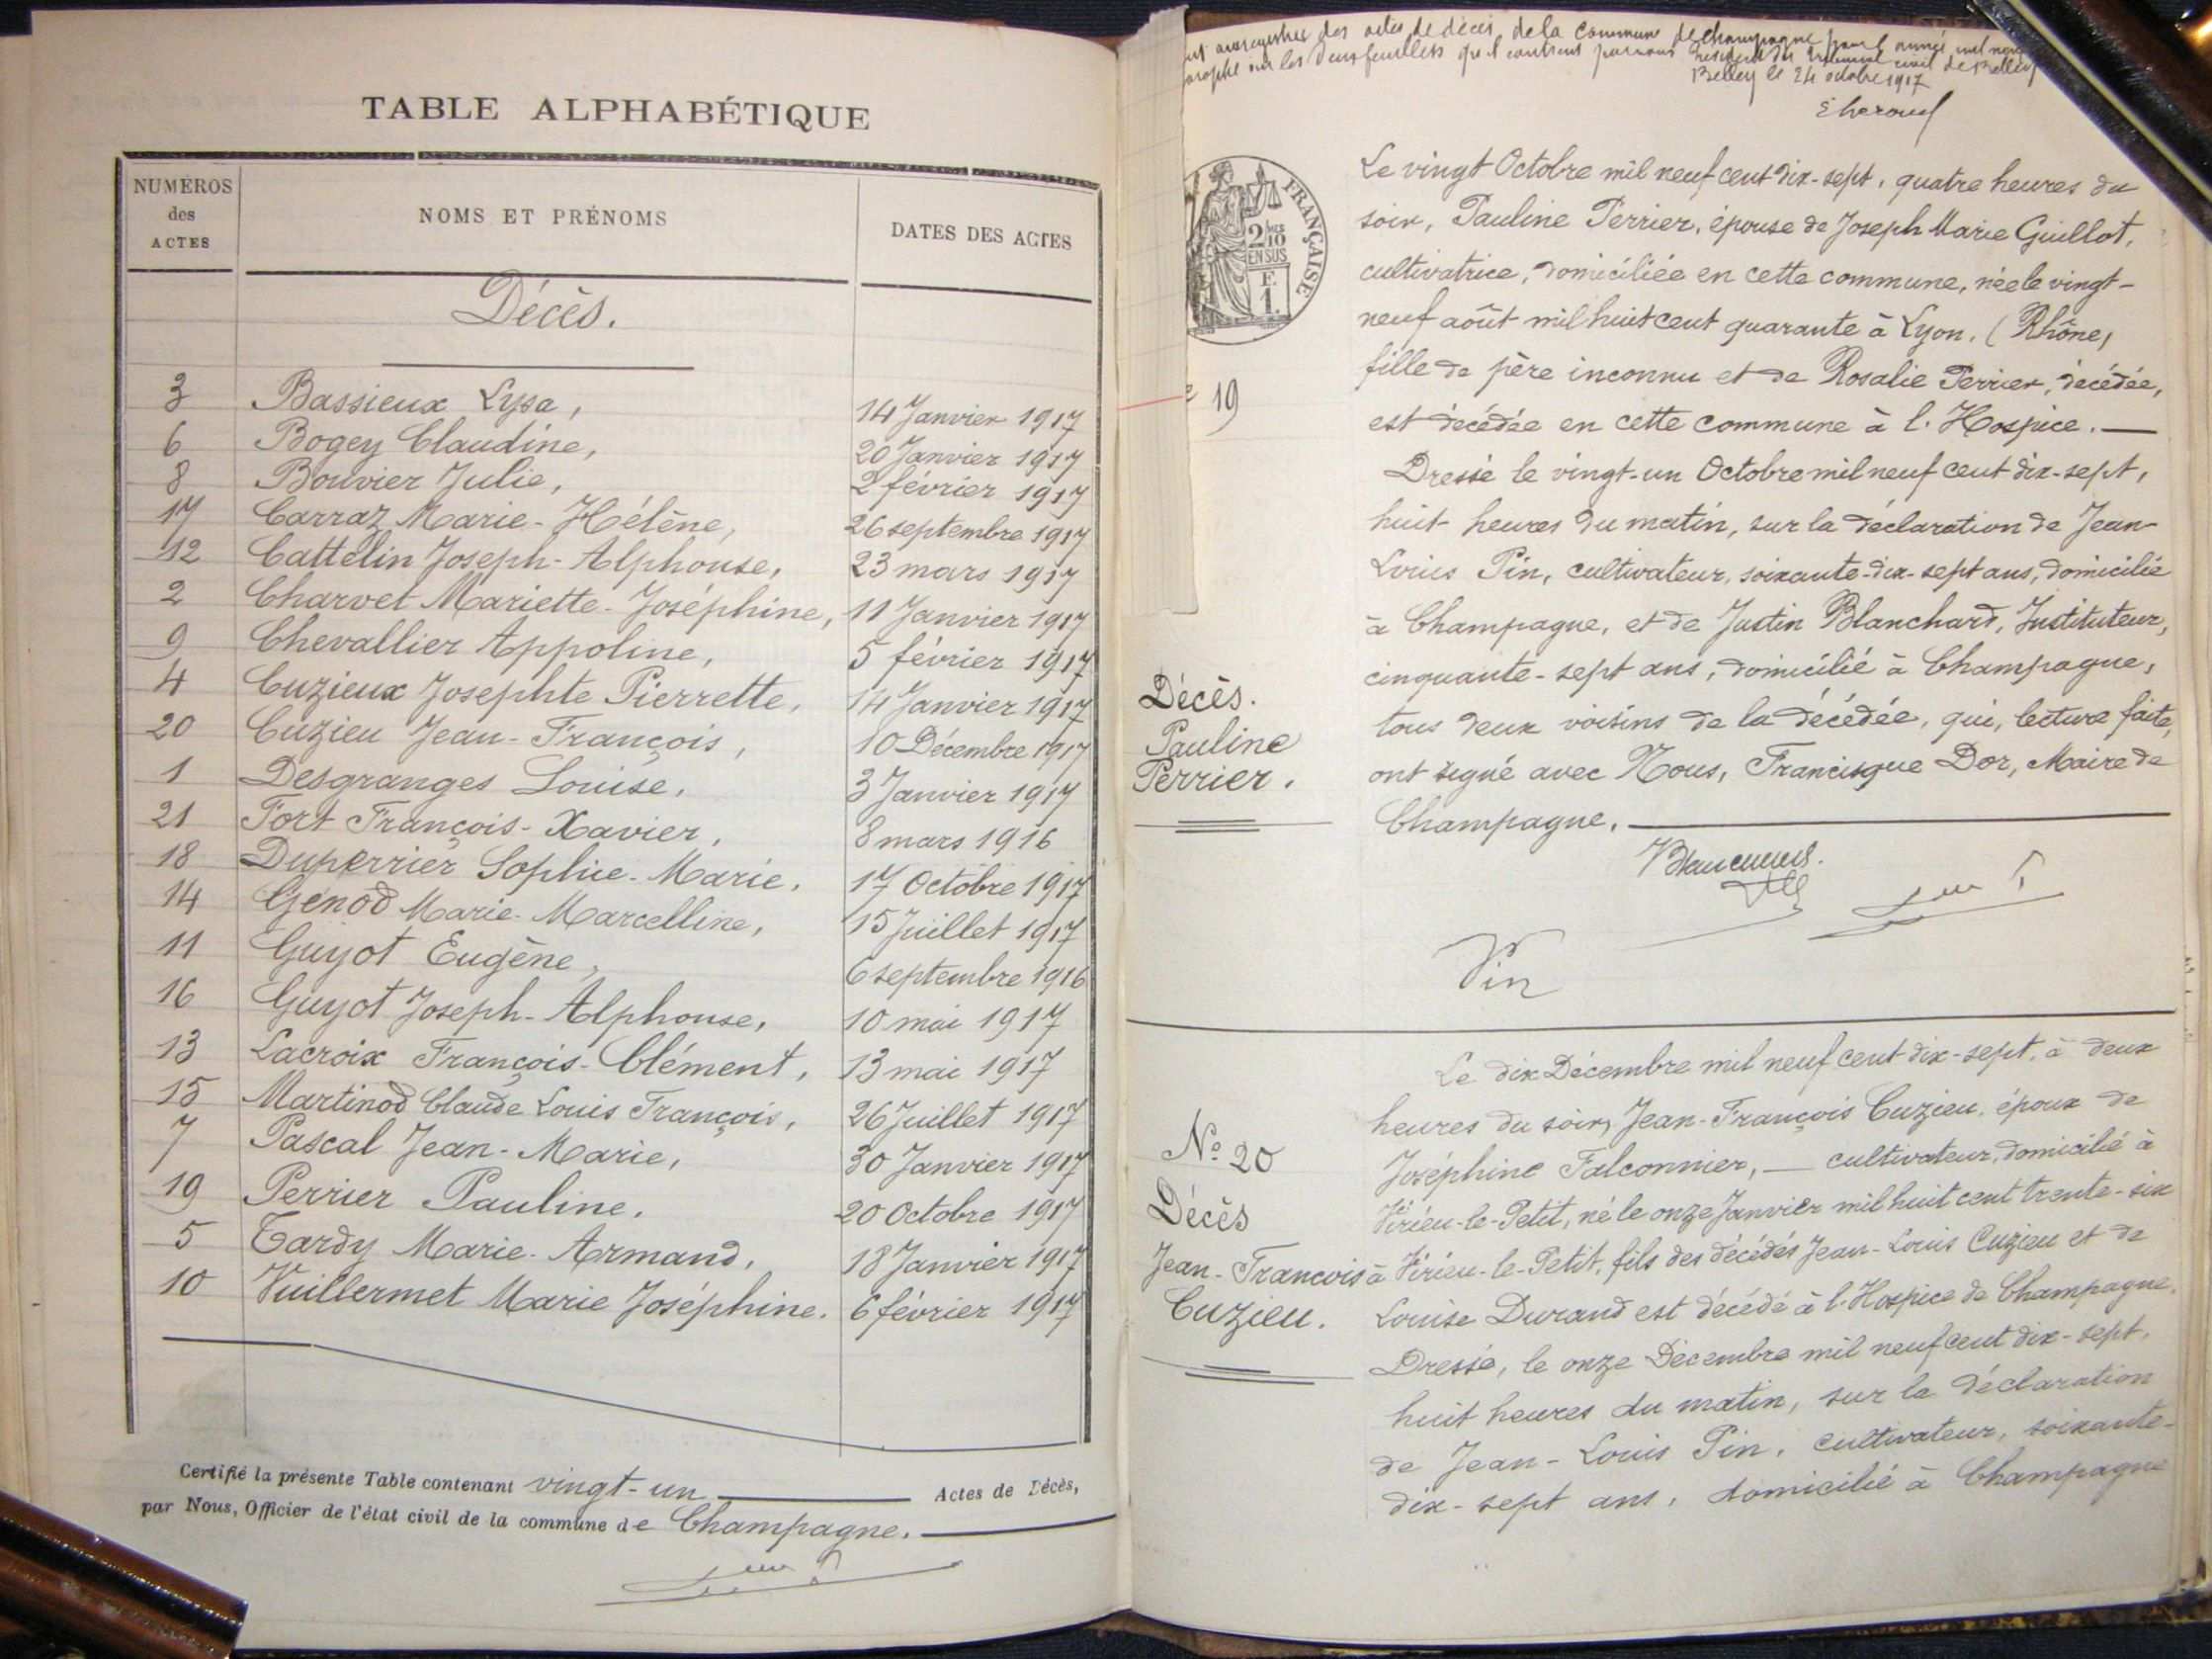 TABLE ALPHABÉTIQUE
NUMÉROS
des
ACTES
NOMS ET PRÉNOMS
DATES DES ACTES
Décès.
3 Bassieux Lysa, 14 Janvier 1917
6 Bogey Claudine, 20 Janvier 1917
8 Bouvier Julie, 2 février 1917
17 Carraz Marie-Hélène, 26 septembre 1917
12 Cattelin Joseph-Alphonse, 23 mars 1917
2 Charvet Mariette-Joséphine, 11 Janvier 1917
9 Chevallier Appoline, 5 février 1917
4 Cuzieux Josephte Pierrette, 14 Janvier 1917
20 Cuzieu Jean-François, 10 Décembre 1917
1 Desgranges Louise, 3 Janvier 1917
21 Fort François-Xavier, 8 mars 1916
18 Duperrier Sophie-Marie, 17 Octobre 1917
14 Genod Marie-Marcelline, 15 Juillet 1917
11 Guyot Eugène, 6 septembre 1916
16 Guyot Joseph-Alphonse, 10 mai 1917
13 Lacroix François-Clément, 13 mai 1917
15 Martinod Claude Louis François, 26 Juillet 1917
7 Pascal Jean-Marie, 30 Janvier 1917
19 Perrier Pauline. 20 Octobre 1917
5 Tardy Marie-Armand, 18 Janvier 1917
10 Vuillermet Marie Joséphine. 6 février 1917
Certifié la présente Table contenant vingt-un Actes de Décès,
par Nous, Officier de l'état civil de la commune de Champagne.
des actes de décès de la Commune de Champagne pour l'année mil
sur les deux feuillets qu'il contient par nous Président du Tribunal civil de Belley
Belley le 24 octobre 1917
FRANÇAISE
2/10
EN SUS
E
1.
19
Décès.
Pauline
Perrier.
Le vingt Octobre mil neuf cent dix-sept, quatre heures du
soir, Pauline Perrier, épouse de Joseph Marie Guillot,
cultivatrice, domiciliée en cette commune, née le vingt-
neuf août mil huit cent quarante à Lyon, (Rhône,
fille de père inconnu et de Rosalie Perrier, décédée,
est décédée en cette commune à l'Hospice.
Dressé le vingt-un Octobre mil neuf cent dix-sept,
huit heures du matin, sur la déclaration de Jean-
Louis Pin, cultivateur, soixante-dix-sept ans, domicilié
à Champagne, et de Justin Blanchard, Instituteur,
cinquante-sept ans, domicilié à Champagne,
tous deux voisins de la décédée, qui, lecture faite,
ont signé avec Nous, Francisque Dor, Maire de
Champagne.
Pin
No 20
Décès
Jean-François
Cuzieu.
Le dix Décembre mil neuf cent dix-sept, à deux
heures du soir, Jean-François Cuzieu, époux de
Joséphine Falconnier, cultivateur, domicilié à
Virieu-le-Petit, né le onze Janvier mil huit cent trente-six
à Virieu-le-Petit, fils des décédés Jean-Louis Cuzieu et de
Louise Durand est décédé à l'Hospice de Champagne.
Dressé, le onze Décembre mil neuf cent dix-sept,
huit heures du matin, sur la déclaration
de Jean-Louis Pin, cultivateur, soixante-
dix-sept ans, domicilié à Champagne